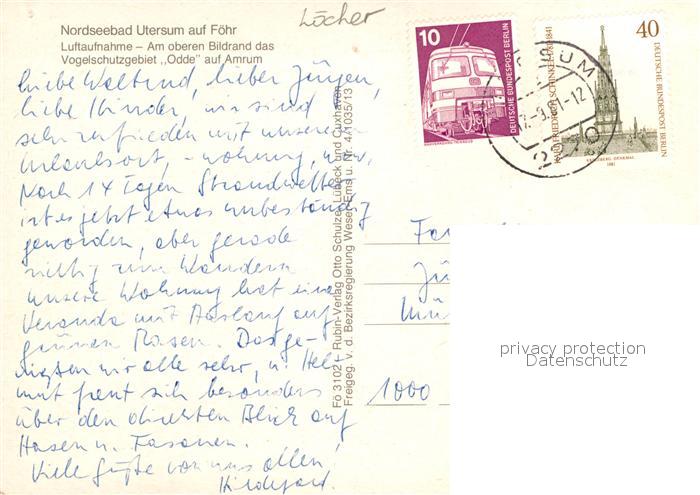 Löcher
Nordseebad Utersum auf Föhr
Luftaufnahme – Am oberen Bildrand das
Vogelschutzgebiet „Odde" auf Amrum
Liebe Waltraud, lieber Jürgen,
liebe Kinder, wir sind
sehr zufrieden mit unserem
Urlaubsort, -wohnung, usw.
Nach 14 Tagen Strandwetter
ist es jetzt etwas unbeständig
geworden, aber gerade
richtig zum Wandern
unsere Wohnung hat eine
Veranda mit Auslauf auf
grünen Rasen. Das ge-
nießen wir alle sehr, u. Hel-
mut freut sich besonders
über den direkten Blick auf
Hasen u. Fasanen.
Viele Grüße von uns allen,
Hildegard.
Fö 3102 Rubin-Verlag Otto Schulze, Lübeck und Cuxhaven
Freigeg. v. d. Bezirksregierung Weser-Ems u. Nr. 4/1035/13
10
DEUTSCHE BUNDESPOST BERLIN
40
DEUTSCHE BUNDESPOST BERLIN
KARL FRIEDRICH SCHINKEL 1781-1841
KREUZBERG DENKMAL
1981
-12
Fa
Jü
1000
privacy protection
Datenschutz